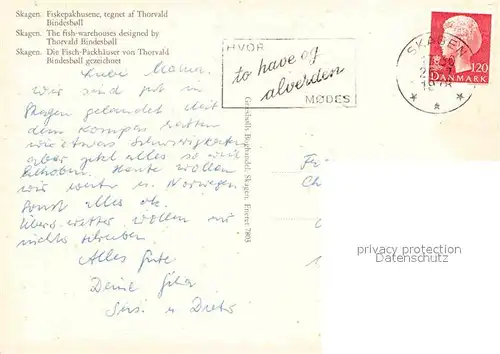 Skagen. Fiskepakhusene, tegnet af Thorvald
Bindesbøll
Skagen. The fish-warehouses designed by
Thorvald Bindesbøll
Skagen. Die Fisch-Packhäuser von Thorvald
Bindesbøll gezeichnet
HVOR
to have og
alverden
MØDES
SKAGEN
1978
120
DANMARK
Liebe Mama.
Wir sind gut in
Skagen gelandet. Mit
dem Kompas hatten
wir etwas Schwierigkeiten
aber jetzt alles so weit
behoben. Heute wollen
wir weiter n. Norwegen
sonst alles ok.
Übers Wetter wollen wir
nichts schreiben.
Alles Gute
Deine
u Dieter
Grassholls Boghandel, Skagen. Eneret 7808
privacy protection
Datenschutz